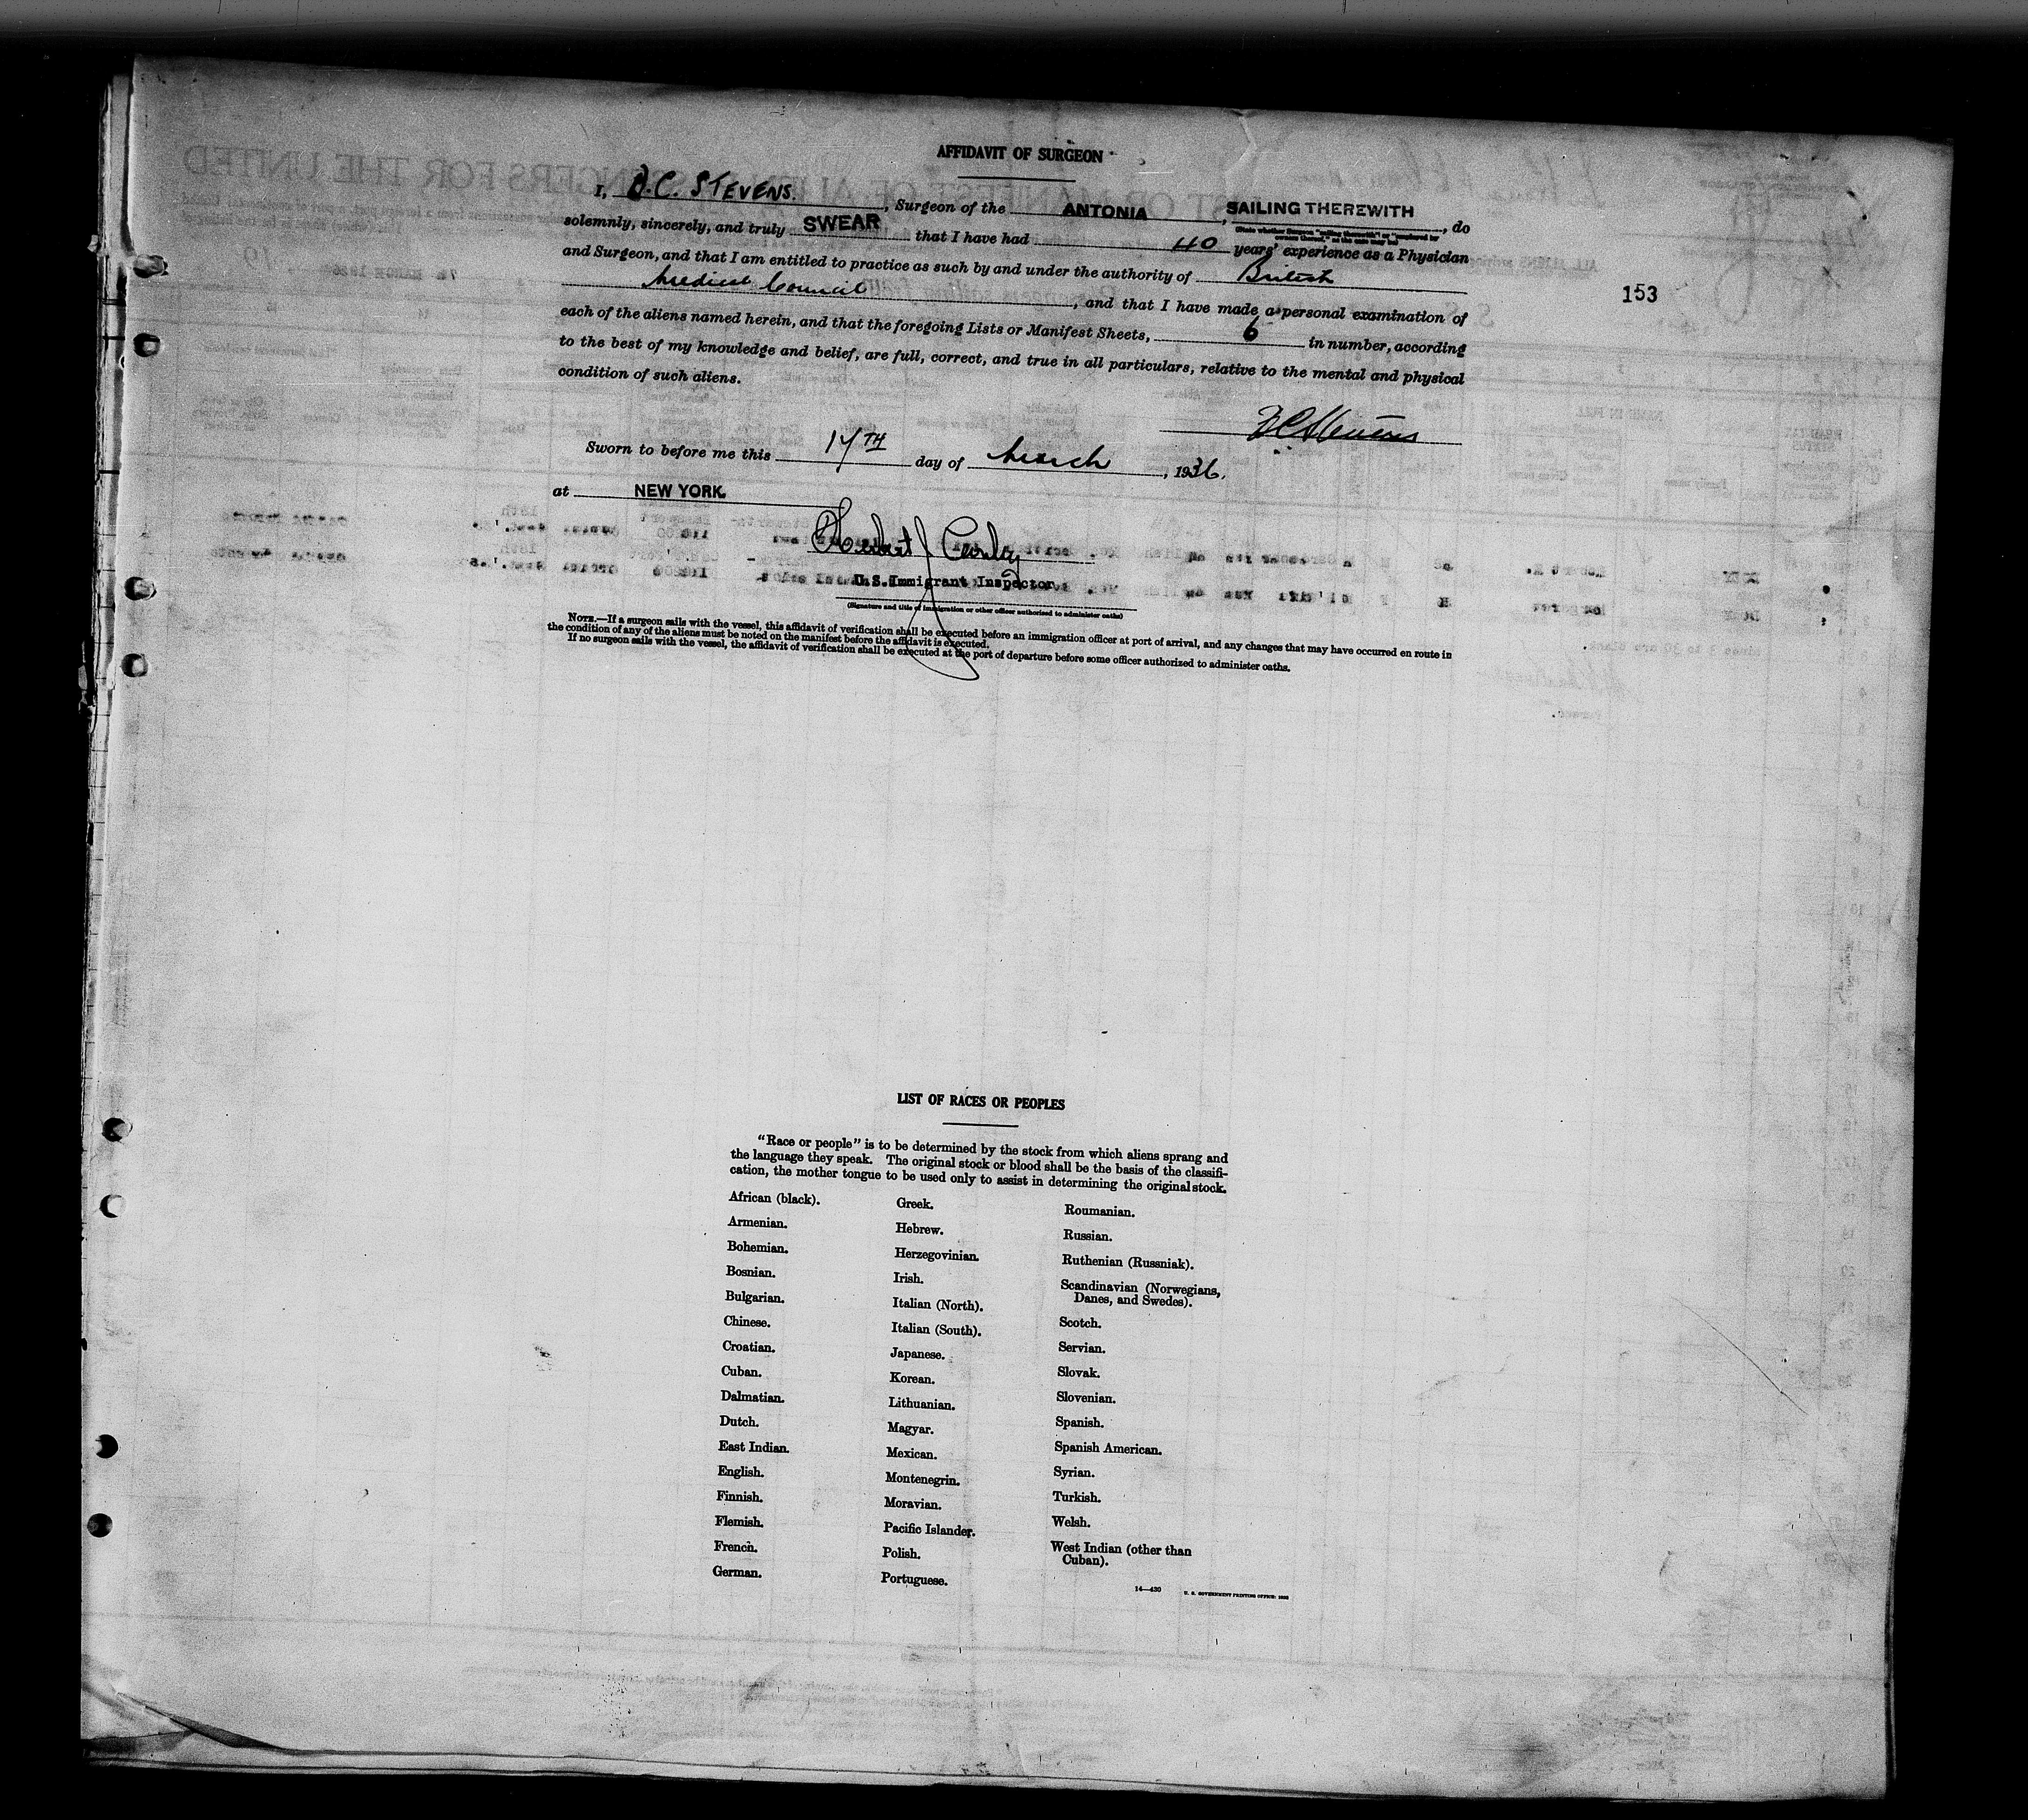 AFFIDAVIT OF SURGEON
I, B.C. STEVENS., Surgeon of the ANTONIA, SAILING THEREWITH, do
(State whether Surgeon "sailing therewith" or "employed by owners thereof," as the case may be)
solemnly, sincerely, and truly SWEAR that I have had 40 years' experience as a Physician
and Surgeon, and that I am entitled to practice as such by and under the authority of British
Medical Council, and that I have made a personal examination of
each of the aliens named herein, and that the foregoing Lists or Manifest Sheets, 6 in number, according
to the best of my knowledge and belief, are full, correct, and true in all particulars, relative to the mental and physical
condition of such aliens.
BC Stevens
Sworn to before me this 17TH day of March, 1936.
at NEW YORK.
Herbert J
U.S. Immigrant Inspector
(Signature and title of immigration or other officer authorized to administer oaths)
NOTE.—If a surgeon sails with the vessel, this affidavit of verification shall be executed before an immigration officer at port of arrival, and any changes that may have occurred en route in
the condition of any of the aliens must be noted on the manifest before the affidavit is executed.
If no surgeon sails with the vessel, the affidavit of verification shall be executed at the port of departure before some officer authorized to administer oaths.
153
LIST OF RACES OR PEOPLES
"Race or people" is to be determined by the stock from which aliens sprang and
the language they speak. The original stock or blood shall be the basis of the classifi-
cation, the mother tongue to be used only to assist in determining the original stock.
African (black).
Armenian.
Bohemian.
Bosnian.
Bulgarian.
Chinese.
Croatian.
Cuban.
Dalmatian.
Dutch.
East Indian.
English.
Finnish.
Flemish.
French.
German.
Greek.
Hebrew.
Herzegovinian.
Irish.
Italian (North).
Italian (South).
Japanese.
Korean.
Lithuanian.
Magyar.
Mexican.
Montenegrin.
Moravian.
Pacific Islander.
Polish.
Portuguese.
Roumanian.
Russian.
Ruthenian (Russniak).
Scandinavian (Norwegians,
Danes, and Swedes).
Scotch.
Servian.
Slovak.
Slovenian.
Spanish.
Spanish American.
Syrian.
Turkish.
Welsh.
West Indian (other than
Cuban).
14—430
U. S. GOVERNMENT PRINTING OFFICE: